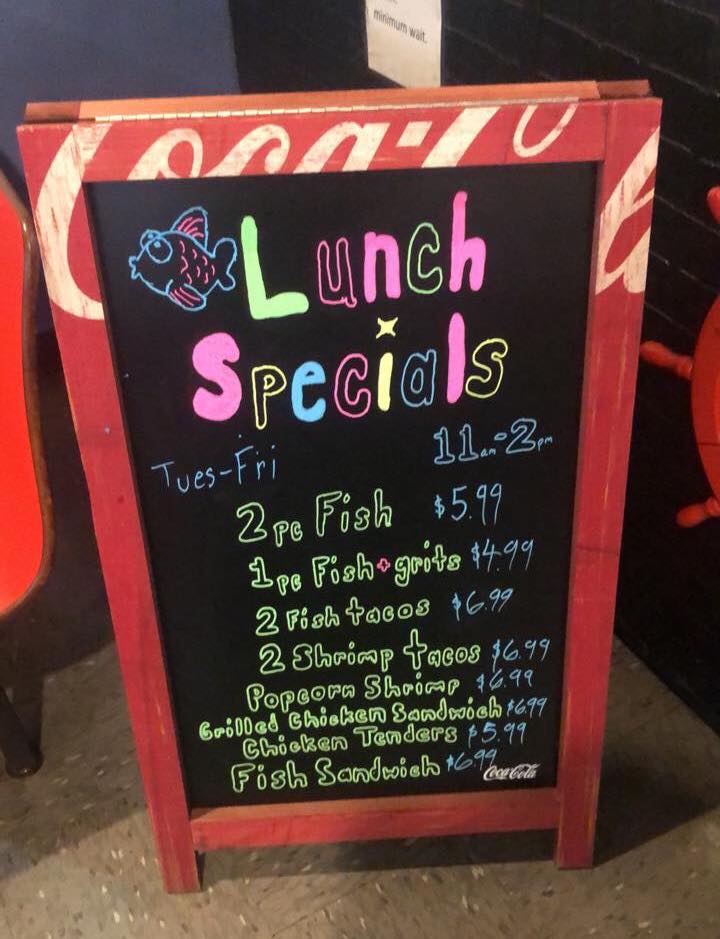 minimum wait.
Coca-Co
Lunch
Specials
Tues-Fri 11am-2pm
2pc Fish $5.99
1pc Fish + grits $4.99
2 Fish tacos $6.99
2 Shrimp tacos $6.99
Popcorn Shrimp $6.99
Grilled Chicken Sandwich $6.99
Chicken Tenders $5.99
Fish Sandwich $6.99
Coca-Cola